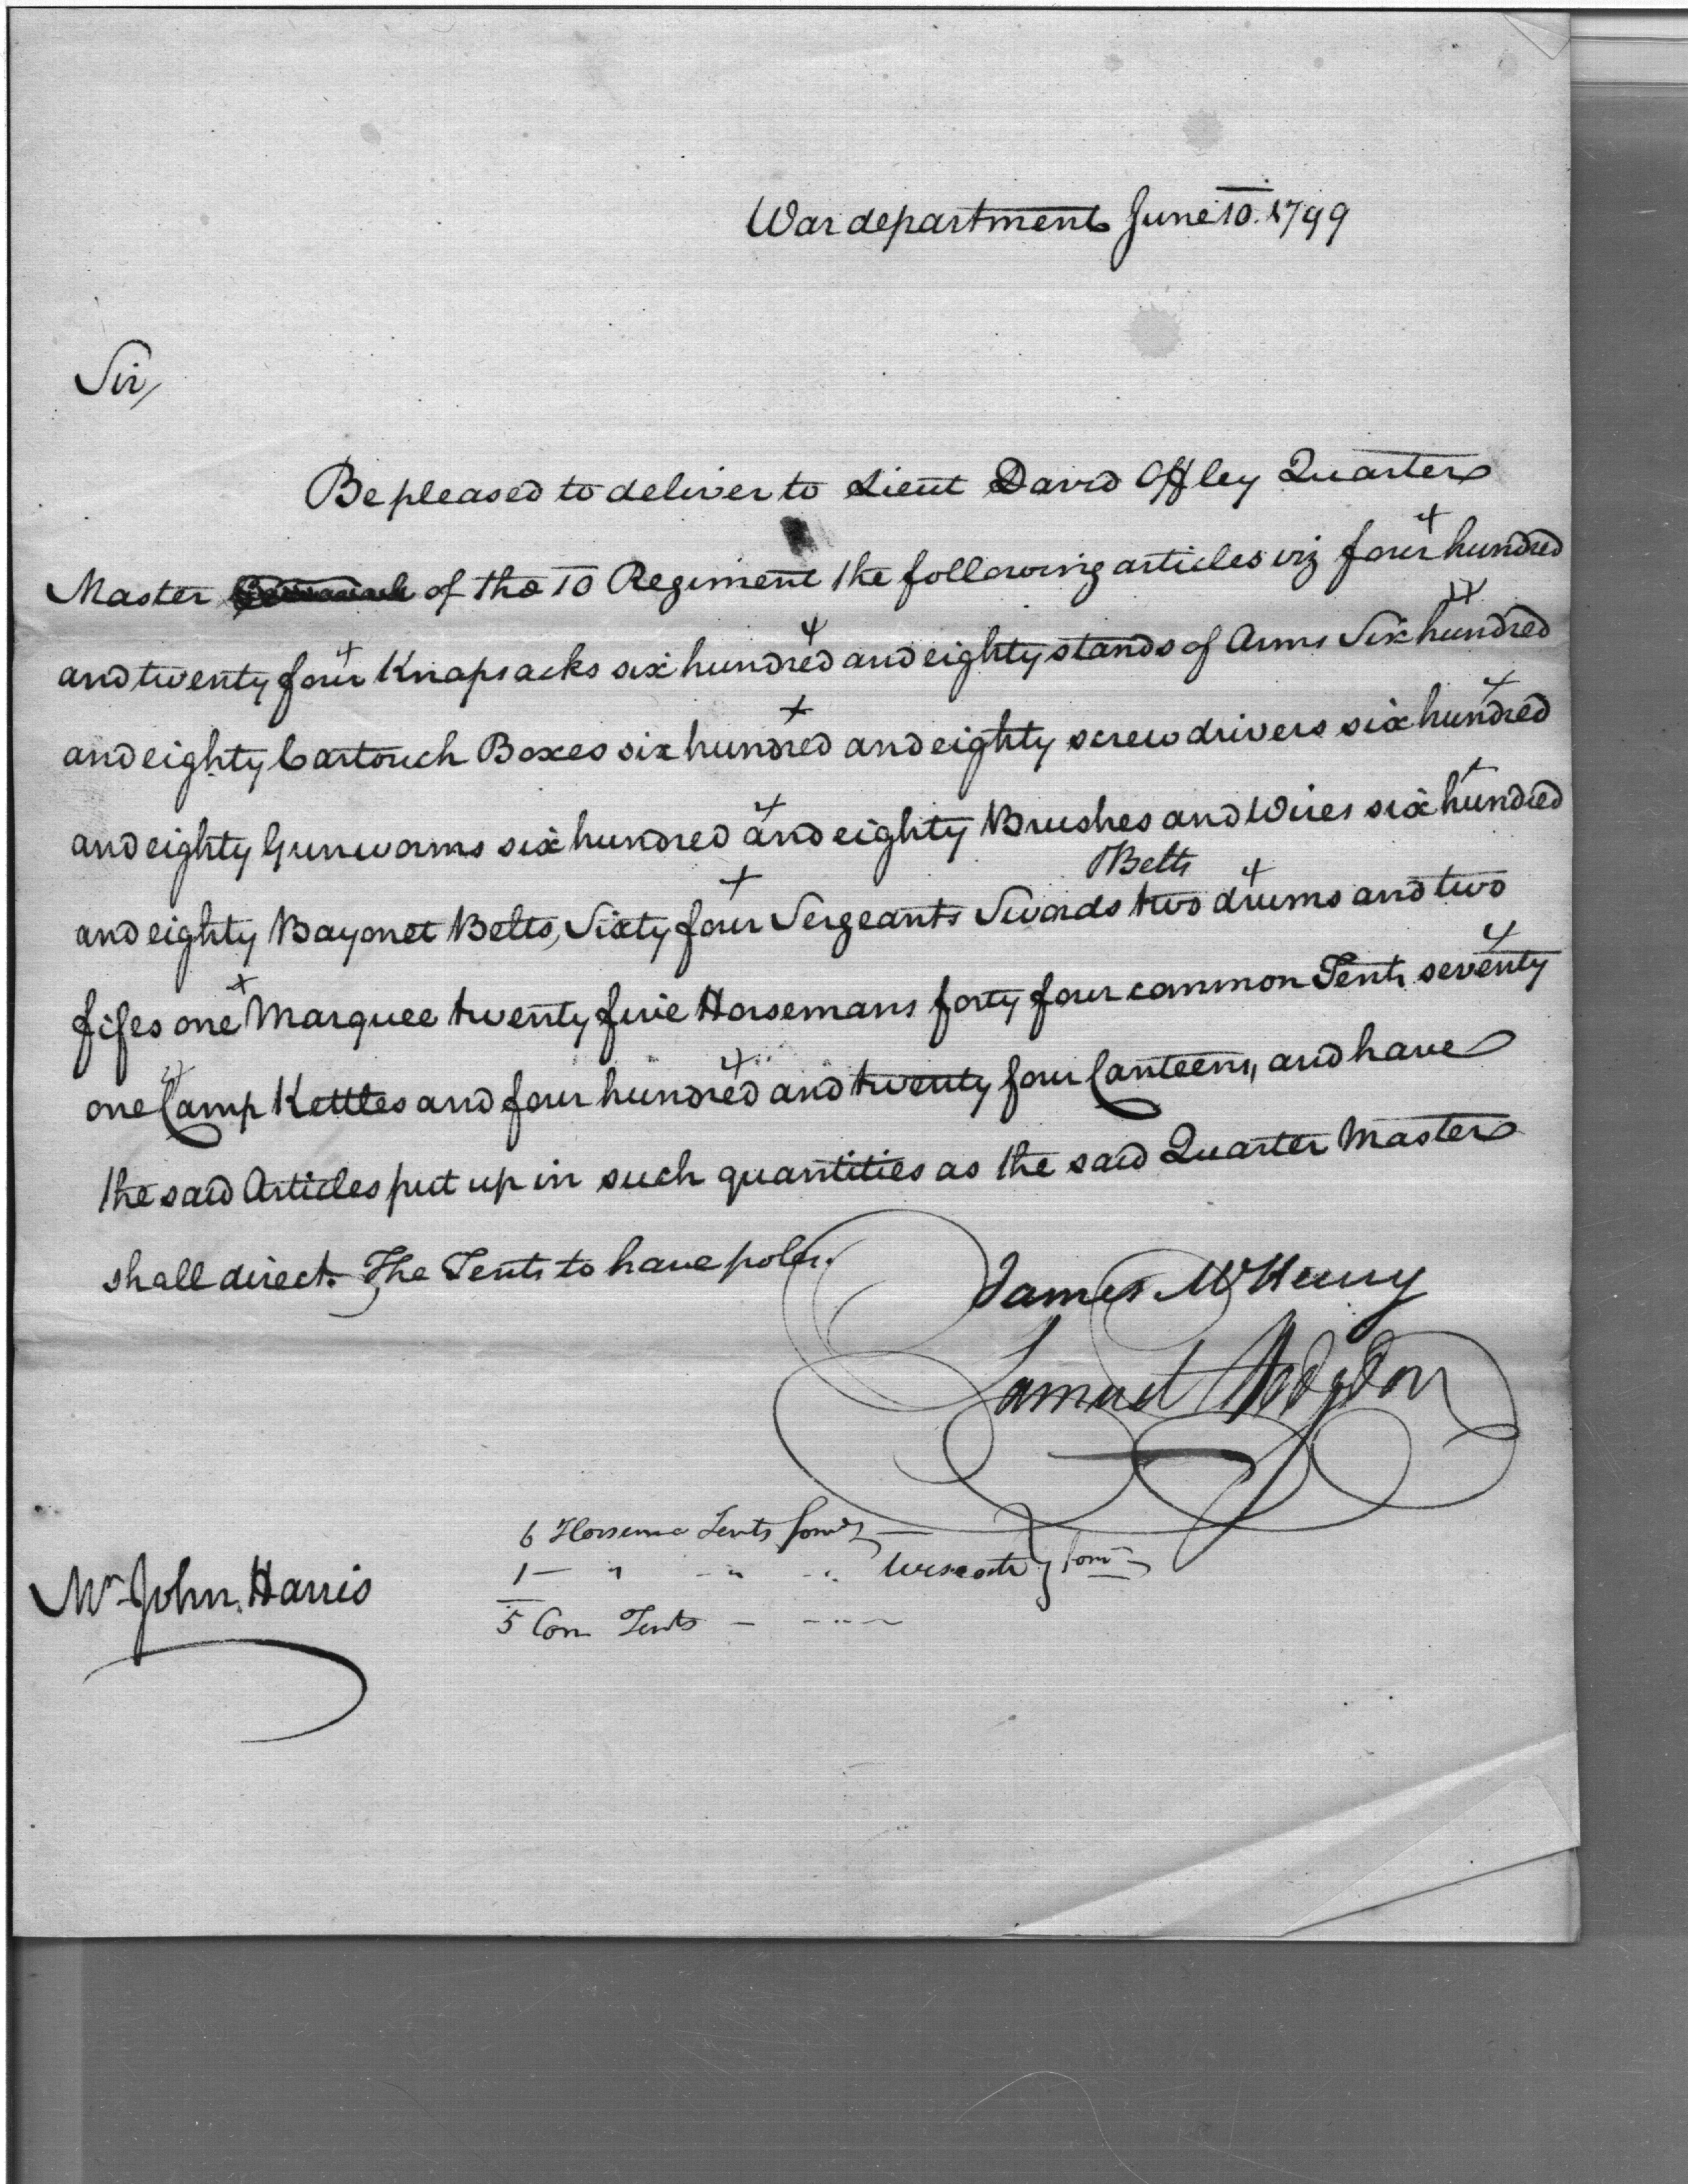 War department June 10. 1799
Sir,
Be pleased to deliver to Lieut David Offley Quarter
Master of the 10 Regiment the following articles viz four hundred
and twenty four Knapsacks six hundred and eighty stands of Arms Six hundred
and eighty Cartouch Boxes six hundred and eighty screw drivers six hundred
and eighty Gunworms six hundred and eighty Brushes and Wires six hundred
Belts
and eighty Bayonet Belts, Sixty four Sergeants Swords two drums and two
fifes one Marquee twenty five Horsemans forty four common Tents seventy
one Camp Kettles and four hundred and twenty four Canteens, and have
the said Articles put up in such quantities as the said Quarter Master
shall direct. The Tents to have poles.
James McHenry
Samuel Hodgdon
6 Horseman Tents
1 — " " "
5 Com Tents — - - -
Mr John Harris